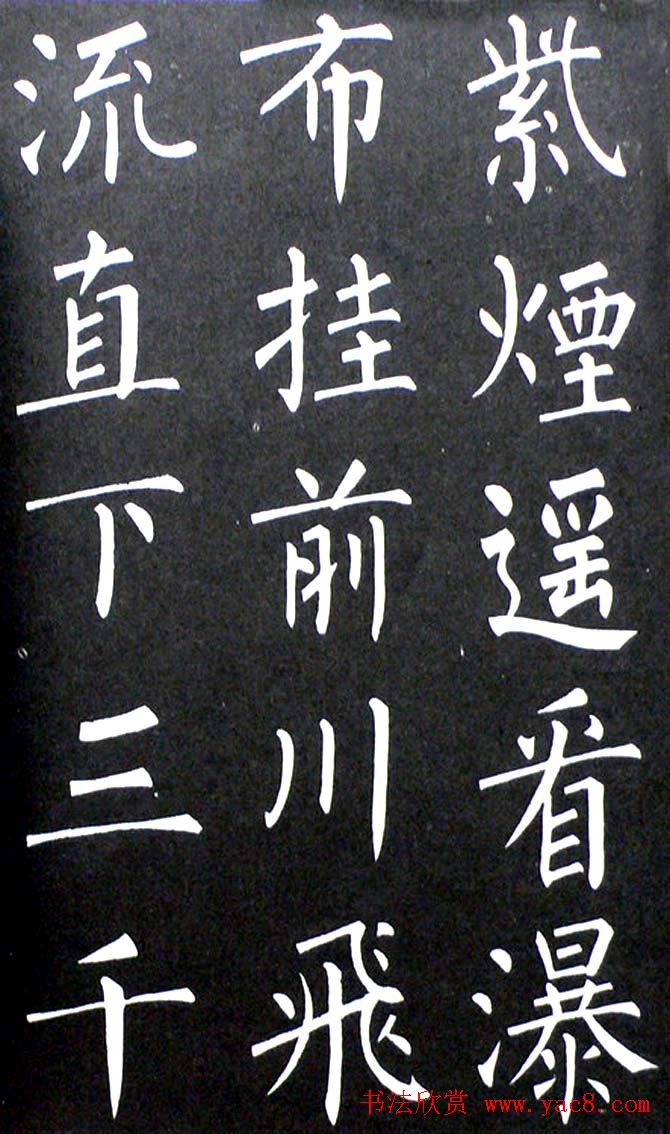 紫煙遥看瀑
布挂前川飛
流直下三千
书法欣赏 www.yac8.com